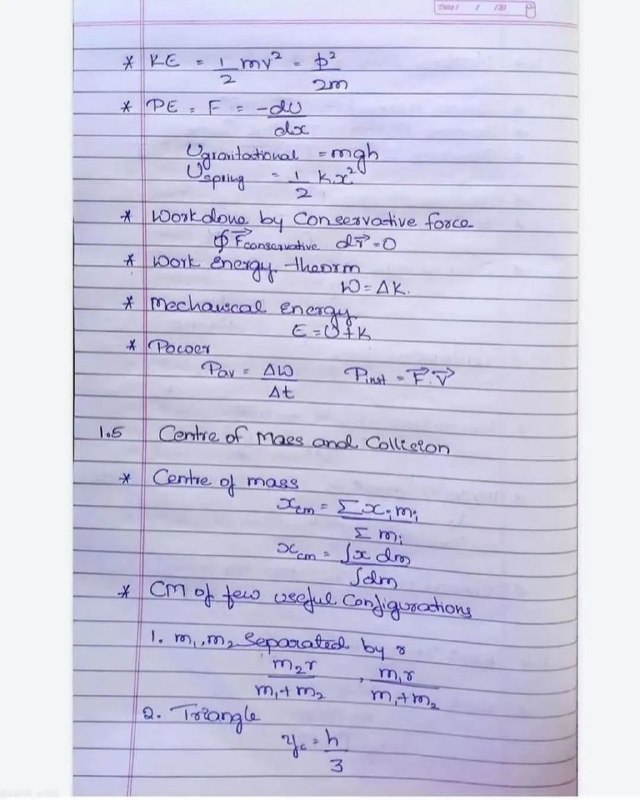 Date / / 20
* KE = 1/2 mv² = p²/2m
* PE = F = -dU/dx
Ugravitational = mgh
Uspring = 1/2 kx²
* Workdone by Conservative force
∮ F⃗conservative dr⃗ = 0
* Work Energy theorm
W = ΔK.
* Mechanical energy
E = U + K
* Power
Pav = ΔW/Δt Pinst = F⃗.V⃗
1.5 Centre of Mass and Collision
* Centre of mass
xcm = Σ xᵢ mᵢ / Σ mᵢ
xcm = ∫x dm / ∫dm
* CM of few useful Configurations
1. m₁, m₂ Separated by r
m₂r / m₁+m₂ , m₁r / m₁+m₂
2. Triangle
yc = h/3